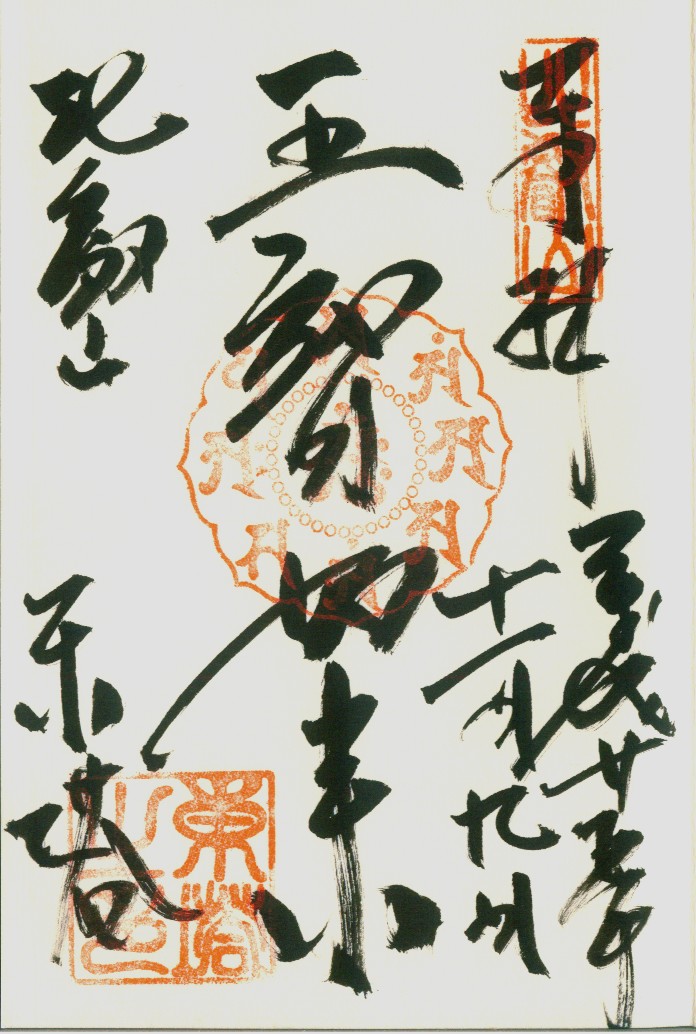 奉拝
平成廿五年
十一月九日
五智如来
比叡山
東塔
東塔
之印